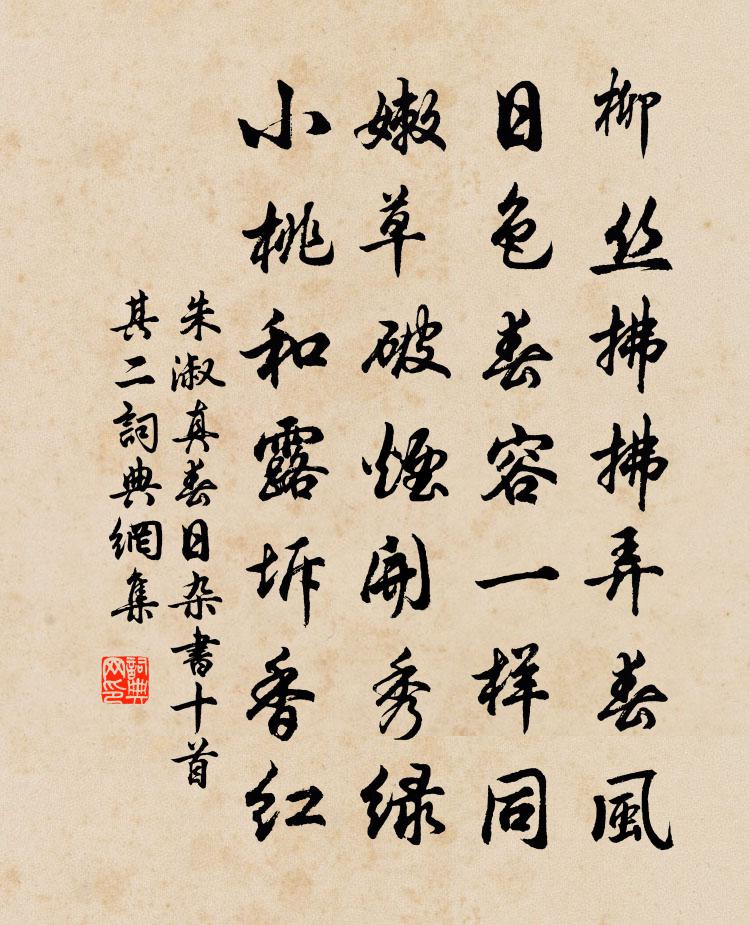 柳丝拂拂弄春風
日色春容一样同
嫩草破煙開秀绿
小桃和露坼香红
朱淑真春日杂書十首
其二詞典網集
詞典网印